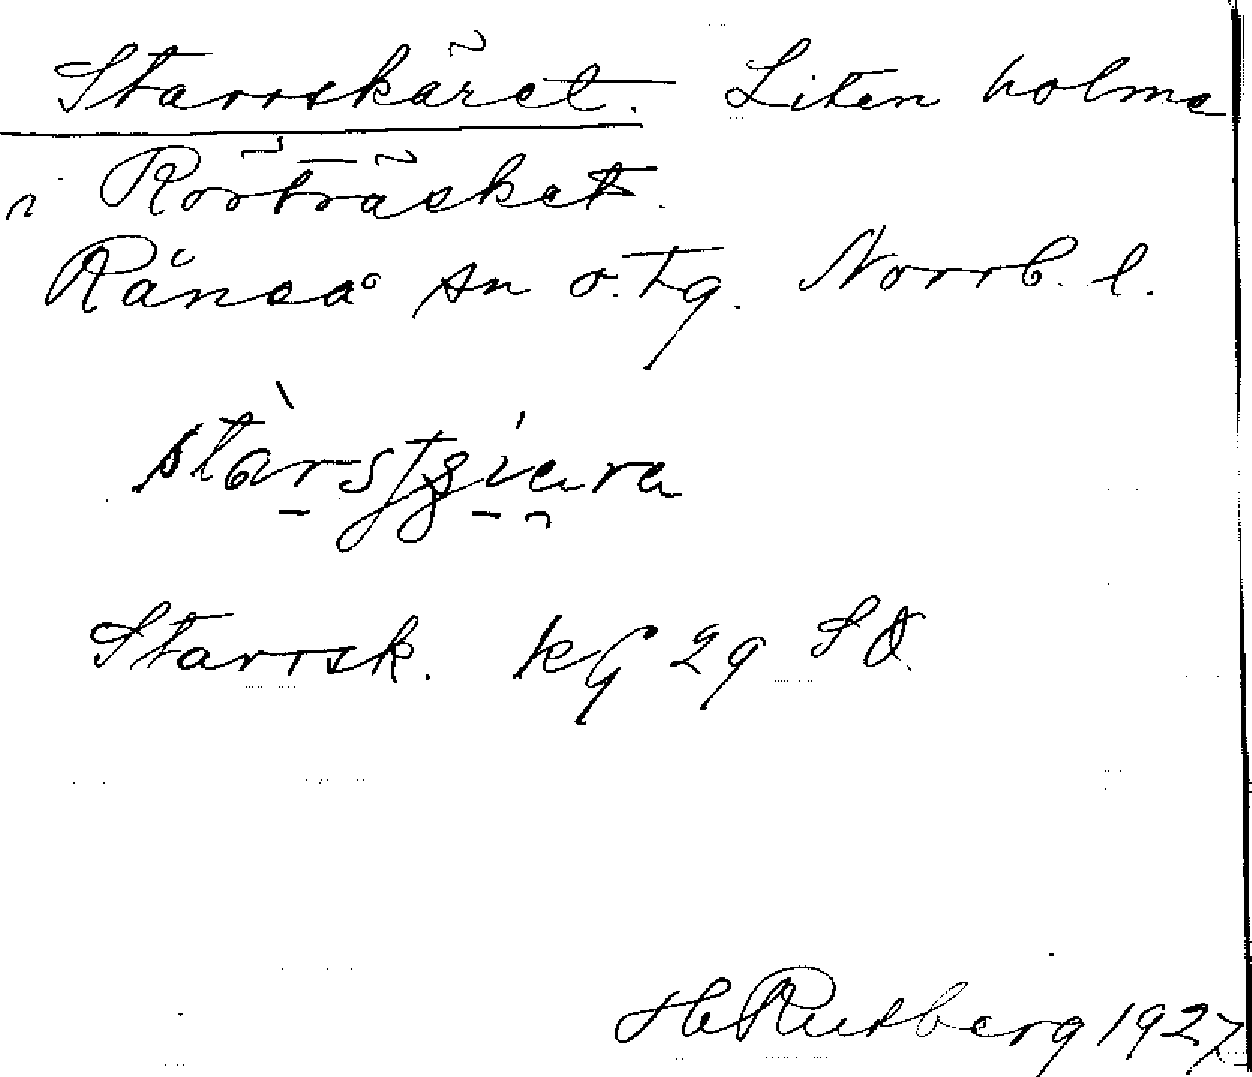 Starrskäret. Liten holme
i Rörträsket.
Råneå sn o. tg. Norrb. l.
Starrsk. kg 29 SO.
H Rutberg 1927